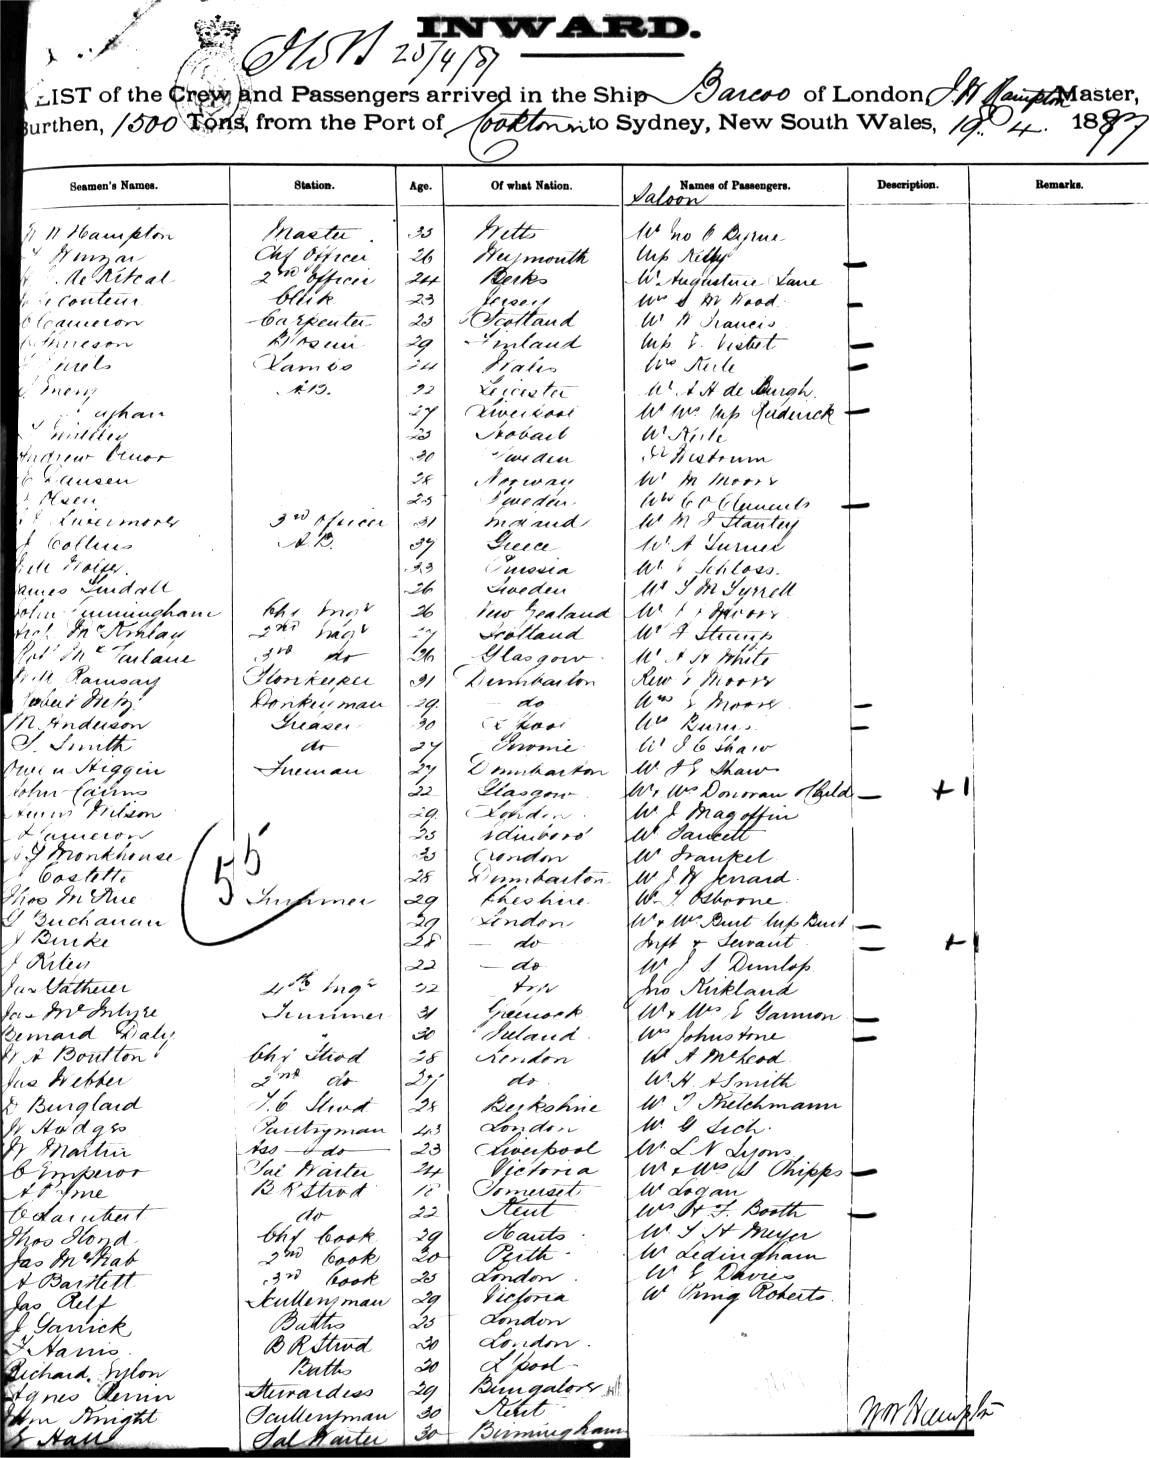 INWARD.
25/4/87
LIST of the Crew and Passengers arrived in the Ship Barcoo of London, Hampton Master,
Burthen, 1500 Tons, from the Port of Cooktown to Sydney, New South Wales, 19. 4. 1887
Seamen's Names. Station. Age. Of what Nation. Names of Passengers. Description. Remarks.
Saloon
Hampton Master 33 Wilts Mr Jno O Byrne
Winzar Chf Officer 26 Weymouth Miss Kelly —
2nd Officer 24 Berks Mr Augustine Lane
Clerk 23 Jersey Mrs Wood —
Cameron Carpenter 23 Scotland Mr Francis
29 Finland Miss —
Lamps 24 Wales Mrs —
A.B. 22 Leicester Mr A H de Burgh
27 Liverpool Mr Mrs Miss Roderick —
23 Hobart Mr
Andrew 30 Sweden
Hansen 28 Norway Mr M Moore
Olsen 23 Sweden Mrs Clements —
Livermore 3rd Officer 31 Mr Stanley
J Collins A.B. 37 Greece Mr A Turner
33 Russia Mr Schloss
James Tindall 26 Sweden Mr T M Tyrrell
John Cunningham Chf Engr 26 New Zealand Mr
Arch McKinlay 2nd Engr 27 Scotland Mr
Robt McFarlane 3rd do 26 Glasgow Mr A H White
Ramsay Storekeeper 31 Dumbarton Revd Moore
Robert Donkeyman 29 do Mrs E Moore —
M Anderson Greaser 30 L'pool Mrs Burns —
T. Smith do 27 Mr J C Shaw
Owen Higgin Fireman 27 Dumbarton Mr Shaw
John Cairns 22 Glasgow Mr & Mrs Donovan & Child — +1
Wilson 29 London Mr J Magoffin
Cameron 23 Edinboro' Mr Faucett
Monkhouse 33 London Mr Frankel
Costello 28 Dumbarton Mr J H Jerrard
55
Thos McRue Trimmer 29 Cheshire Mr T Osborne
G Buchanan 29 London Mr & Mrs Burt Miss Burt —
J Burke 28 — do Inft & Servant — +1
J Riley 22 — do Mr J S Dunlop
Jas Gatherer 4th Engr 22 Jno Kirkland
Jas McIntyre Trimmer 31 Greenock Mr & Mrs E Gannon —
Bernard Daly " 30 Ireland Mrs Johnstone —
W A Boulton Chf Stwd 28 London Mr A McLeod
Jas Webber 2nd do 27 do Mr H A Smith
D Burglard F.C Stwd 28 Berkshire Mr T Kretchmann
W Hodges Pantryman 43 London Mr G Sich
W Martin Ass do 23 Liverpool Mr L N Lyons
C Emperor Sal Waiter 24 Victoria Mr & Mrs Phipps —
A Pyne B R Stwd 18 Somerset Mr Logan
C Lambert do 22 Kent Mrs H F Booth —
Thos Hond Chf Cook 29 Hants Mr T H Meyer
Jas McNab 2nd Cook 20 Perth Mr Ledingham
A Bartlett 3rd Cook 23 London Mr E Davies
Jas Relf Sculleryman 29 Victoria Mr Pring Roberts
J Garrick Baths 23 London
T Harris B R Stwd 30 London
Richard Sylon Baths 30 L'pool
Agnes Perrin Stewardess 29 Bungalore
Wm Knight Sculleryman 30 Kent
E Hall Sal Waiter 30 Birmingham
Hampton